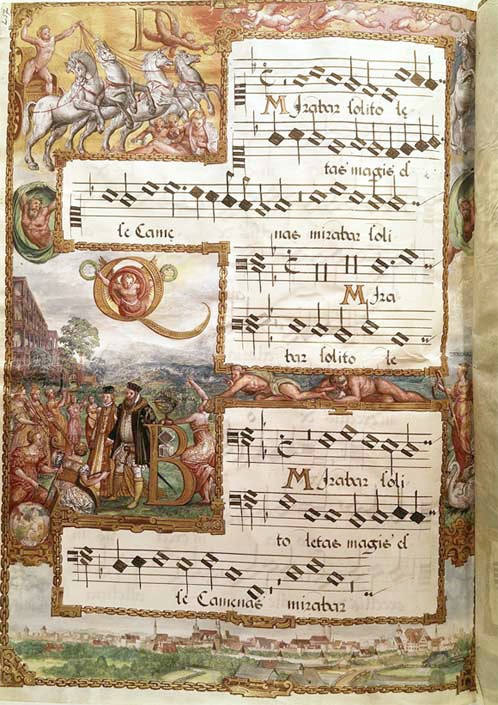 D
Mirabar solito le
tas magis es
se Camę
nas mirabar soli
Q
Mira
bar solito le
B
Mirabar soli
to letas magis es
se Camenas mirabar